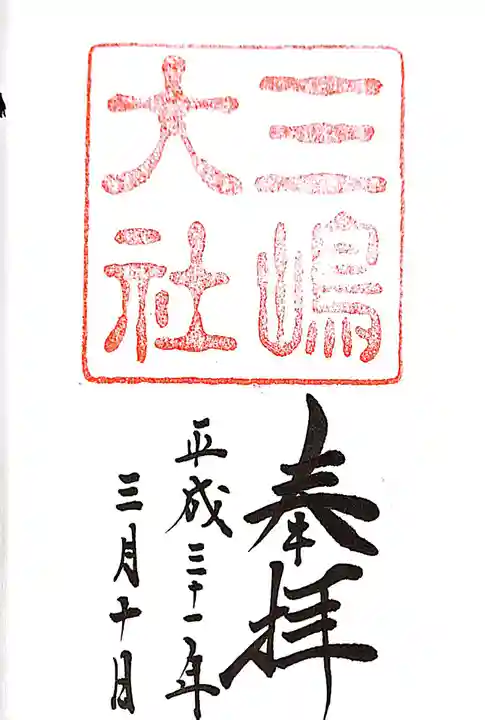 三嶋
大社
奉拝
平成三十一年
三月十日